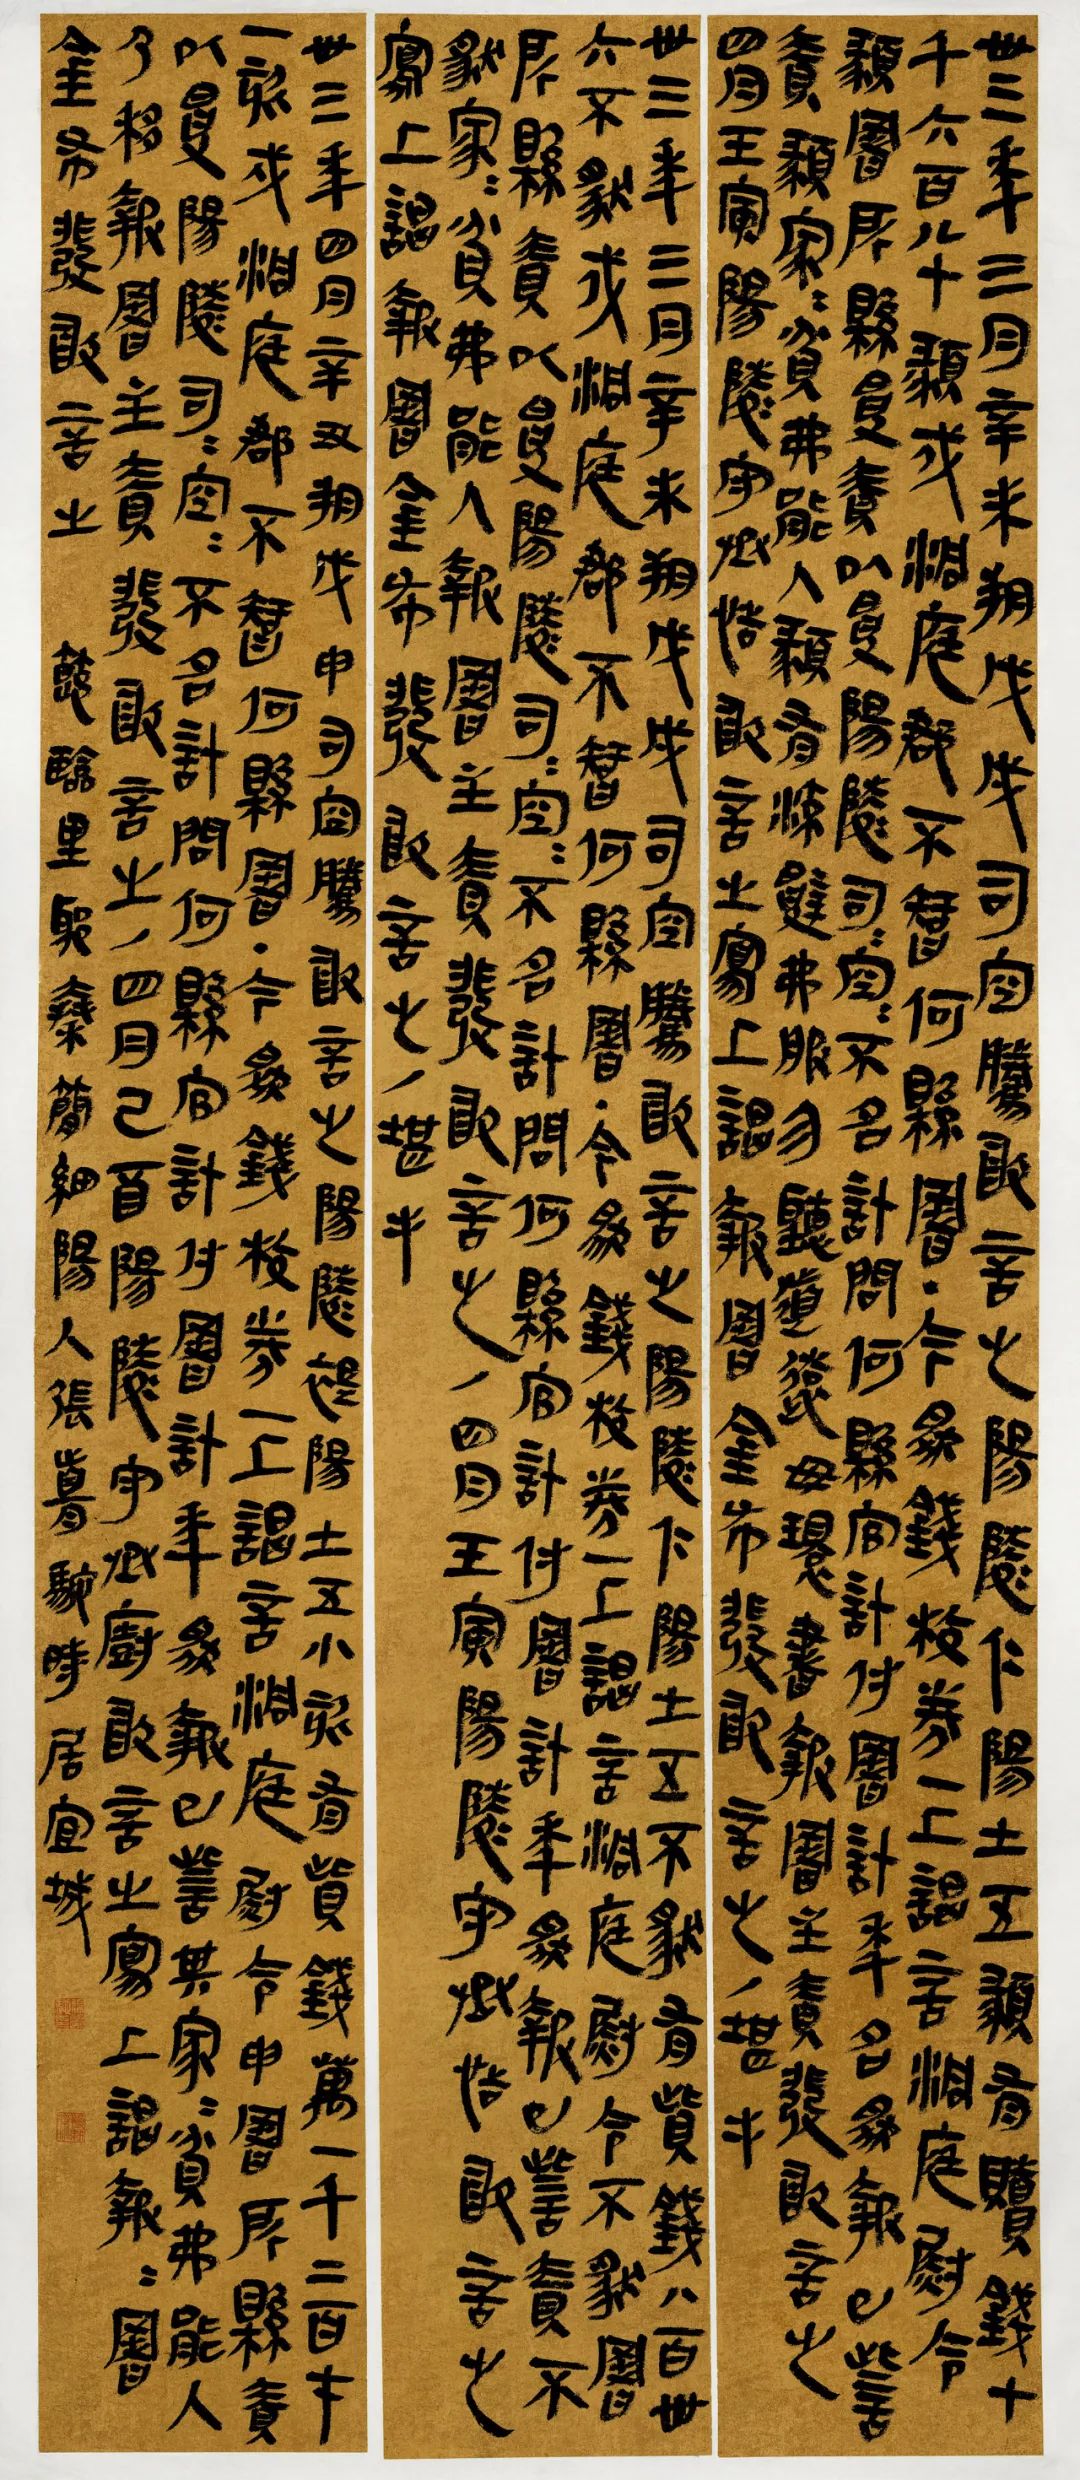 卅三年三月辛未朔戊戌司空騰敢言之陽陵仁陽士五頯有贖錢七
千六百八十頯戍洞庭郡不智何縣署·今為錢校券一上謁言洞庭尉令
頯署所縣受責以受陽陵司=空=不名計問何縣官計付署計年名為報已訾
責頯家=貧弗能入頯有流辟弗服勿聽道遠毋環書報署主責發敢言之
四月壬寅陽陵守丞恬敢言之寫上謁報署金布發敢言之/堪手
卅三年三月辛未朔戊戌司空騰敢言之陽陵仁陽士五不豺有貲錢八百卅
六不豺戍洞庭郡不智何縣署·今為錢校券一上謁言洞庭尉令不豺署
所縣責以受陽陵司=空=不名計問何縣官計付署計年為報已訾責不
豺家=貧弗能入報署主責發敢言之/四月壬寅陽陵守丞恬敢言之
寫上謁報署金布發敢言之/堪手
卅三年四月辛丑朔戊申司空騰敢言之陽陵禔陽士五小欬有貲錢萬一千二百七十
一欬戍洞庭郡不智何縣署·今為錢校券一上謁言洞庭尉令申署所縣責
以受陽陵司=空=不名計問何縣官計付署計年為報已訾其家=貧弗能入
乃移報署主責發敢言之/四月己酉陽陵守丞廚敢言之寫上謁報=署
金布發敢言之 臨里耶秦簡細陽人張貴駿時居宜城